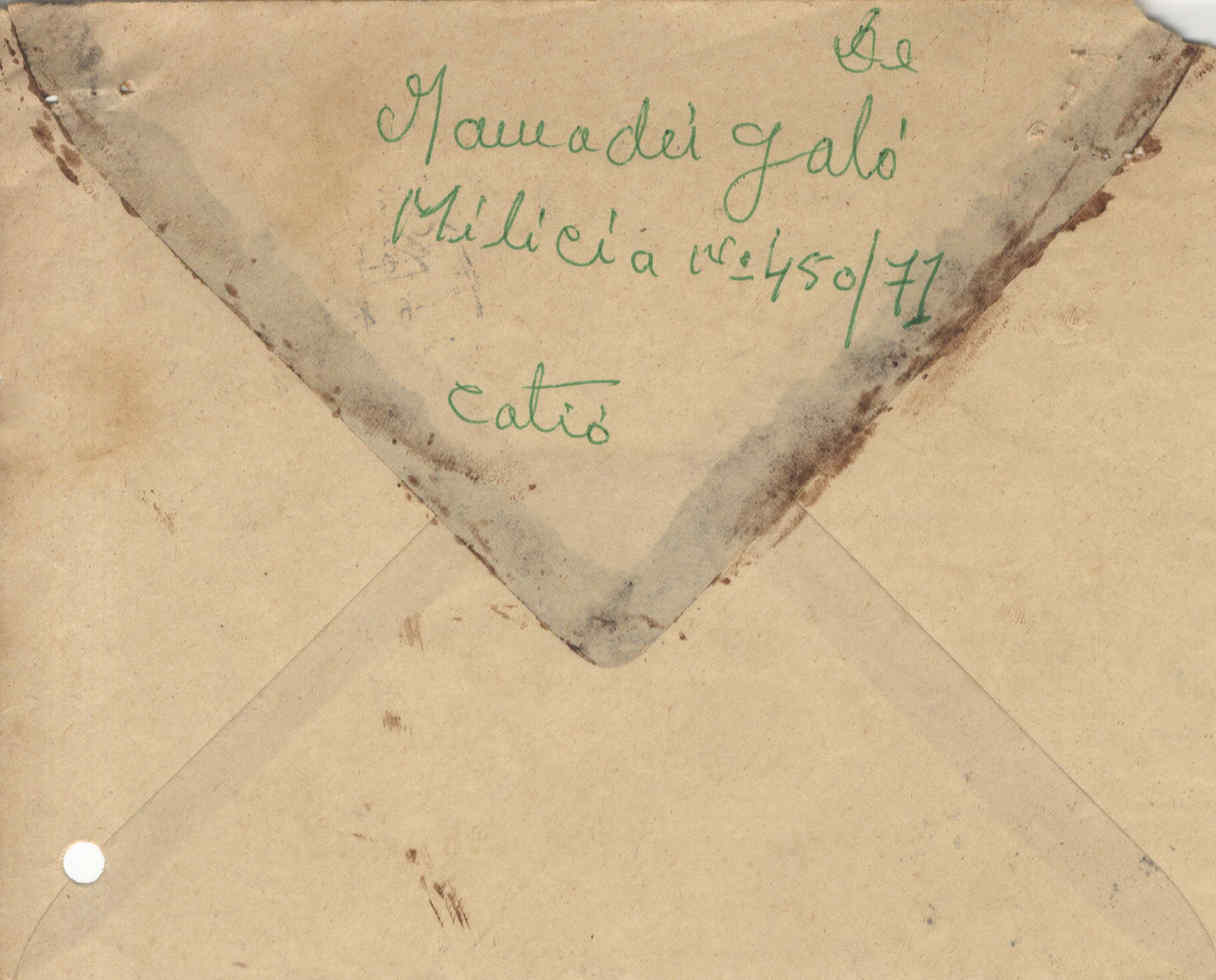 De
Mamadú Galó
Milicia Nº 450/71
Catió